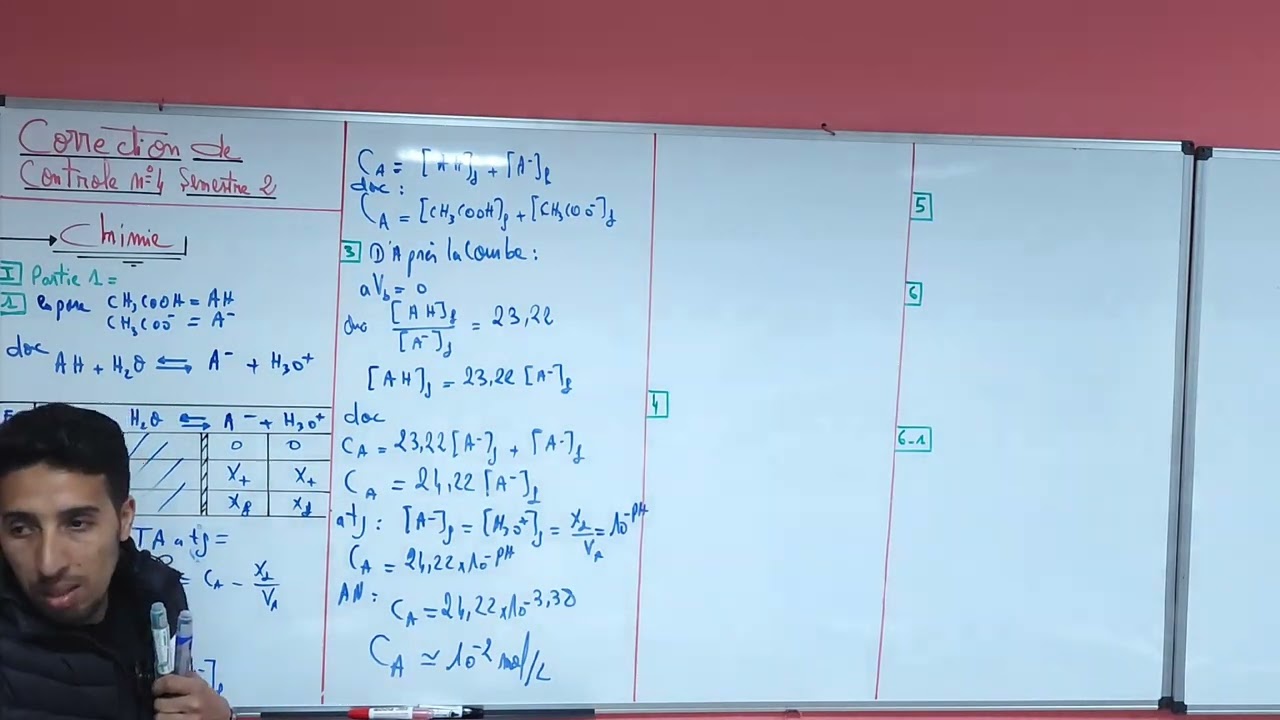 Correction de
Controle n°4 Semestre 2
Chimie
I Partie 1 =
1 on pose CH₃COOH = AH
CH₃COO⁻ = A⁻
doc AH + H₂O ⇌ A⁻ + H₃O⁺
H₂O ⇌ A⁻ + H₃O⁺
0 0
X₊ X₊
Xf Xf
TA à tf =
= CA - Xf/VA
CA = [AH]f + [A⁻]f
doc :
CA = [CH₃COOH]f + [CH₃COO⁻]f
3 D'Après la Courbe :
à Vb = 0
[AH]f/[A⁻]f = 23,22
[AH]f = 23,22 [A⁻]f
doc
CA = 23,22 [A⁻]f + [A⁻]f
CA = 24,22 [A⁻]f
à tf : [A⁻]f = [H₃O⁺]f = Xf/VA = 10⁻ᵖᴴ
CA = 24,22 x 10⁻ᵖᴴ
AN :
CA = 24,22 x 10⁻³,³⁸
CA ≃ 10⁻² mol/L
4
5
6
6-1